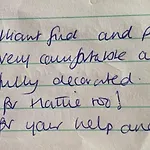 lliant find and f
very comfortable a
fully decorated.
for Hattie too!
for your help and